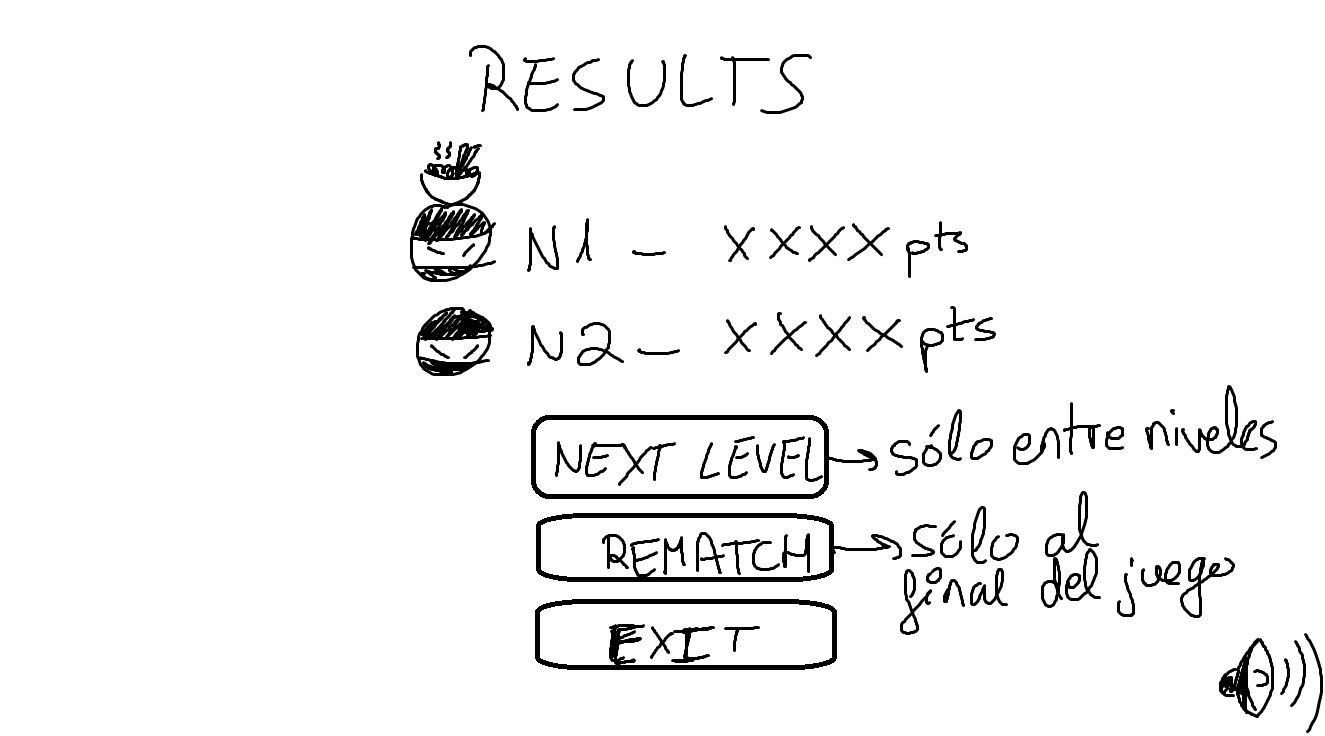 RESULTS
N1 - XXXX pts
N2 - XXXX pts
NEXT LEVEL → sólo entre niveles
REMATCH → sólo al
final del juego
EXIT